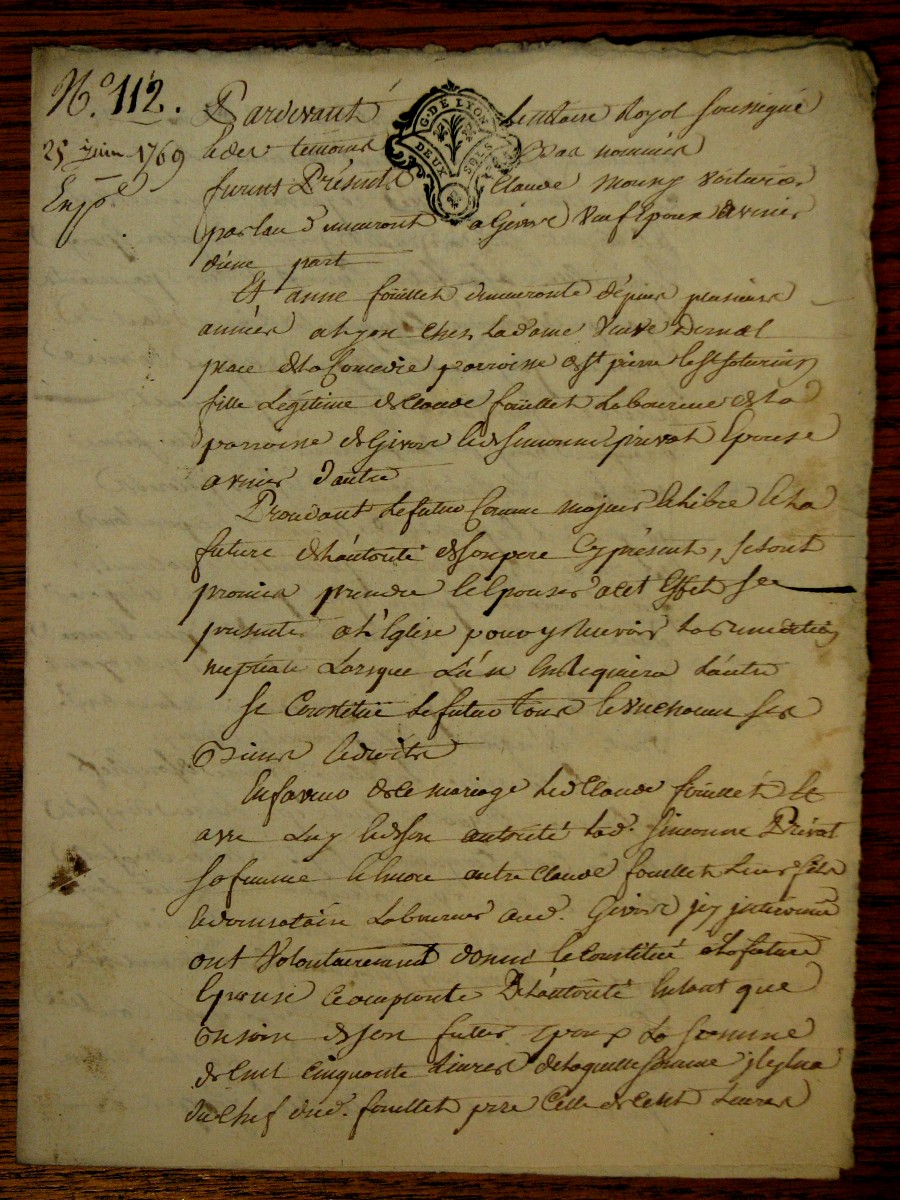 N.º 112.
25 juin 1769
Exp.é
G. DE LYON
DEUX SOLS
Pardevant le notaire Royal soussigné
& des temoins bas nommés
furent Présents Claude voiturier
par eau demeurant a Givors veuf Epoux avenir
d'une part
Et anne foüillet demeurante dépuis plusieurs
années a Lyon chez La dame veuve
place de La Comedie parroisse de St pierre le St Saturnin
fille Légitime de Claude foüillet Laboureur de La
parroisse de Givors & de Simonne privat Epouse
avenir d'autre
Procedant Le futur Comme majeur & Libre & La
future de L'autorité de son pere Cy présent, se sont
promis prendre & Epouser a cet Effet se
presenter a L'Eglise pour y recevoir La Benediction
nuptiale Lorsque L'un En Requierra L'autre
Se Constitüe Le futur tous & un chacun ses
Biens & droits
En faveur de Ce mariage Led. Claude foüillet Et
avec Luy & de son autorité Lad. Simonne Privat
sa femme & encore autre Claude foüillet Leur fils
& donnataire Laboureur aud. Givors jcy
ont Volontairement donné & Constitué a La future
Epouse Ce acceptante De L'autorité Entant que
Besoin de son futur Epoux La Somme
de Cent Cinquante Livres de Laquelle Somme jl y en a
du Chef dud. foüillet pere Celle de Cent Livres